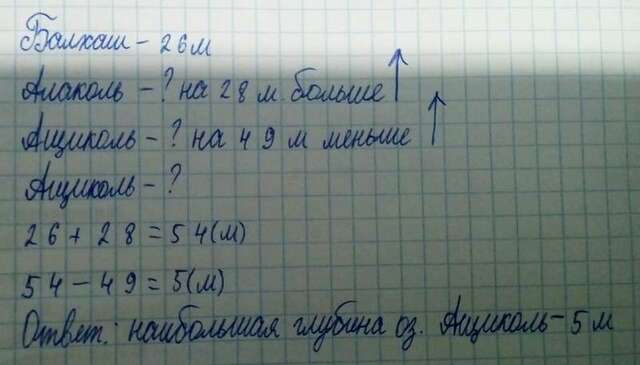 Балхаш - 26м
Алаколь - ? на 28 м больше
Ащиколь - ? на 49 м меньше
Ащиколь - ?
26 + 28 = 54(м)
54 - 49 = 5(м)
Ответ: наибольшая глубина оз. Ащиколь - 5 м